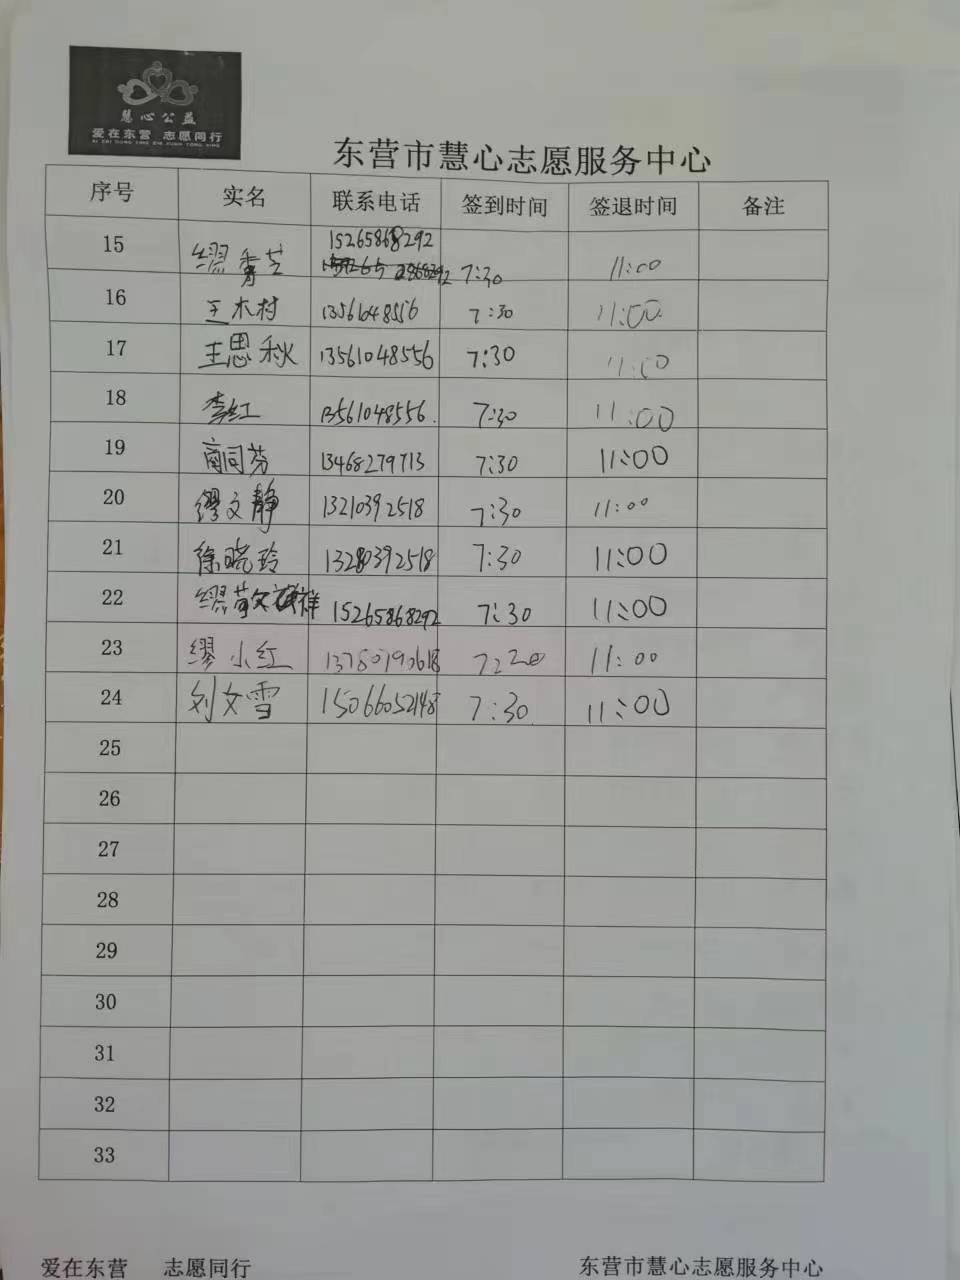 慧心公益
爱在东营 志愿同行
AI ZAI DONG YING ZHI YUAN TONG XING
东营市慧心志愿服务中心
序号 实名 联系电话 签到时间 签退时间 备注
15 缪秀芝 15265868292 7:30 11:00
16 王木村 13561048556 7:30 11:00
17 王思秋 13561048556 7:30 11:00
18 李红 13561048556. 7:30 11:00
19 商同芬 13468279713 7:30 11:00
20 缪文静 13210392518 7:30 11:00
21 徐晓玲 13280392518 7:30 11:00
22 缪 祥 15265868292 7:30 11:00
23 缪小红 11:00
24 刘文雪 15066052148 7:30 11:00
25
26
27
28
29
30
31
32
33
爱在东营 志愿同行 东营市慧心志愿服务中心